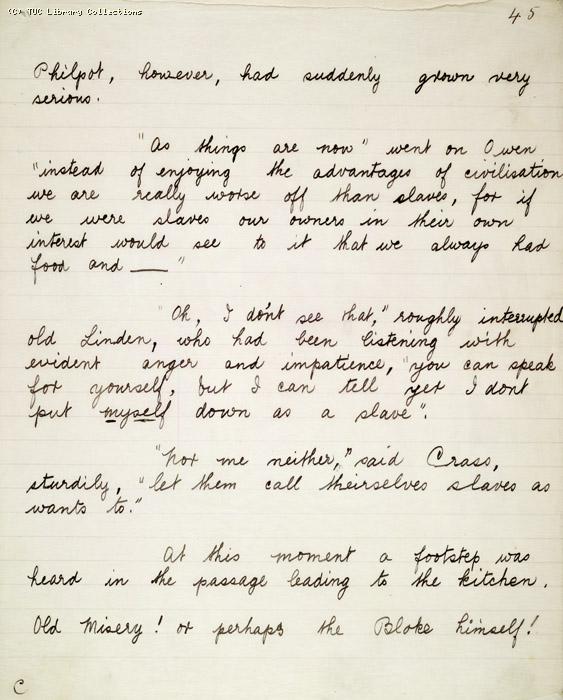 (C) TUC Library Collections
45
Philpot, however, had suddenly grown very
serious.
"As things are now" went on Owen
"instead of enjoying the advantages of civilisation
we are really worse off than slaves, for if
we were slaves our owners in their own
interest would see to it that we always had
food and —— "
"Oh, I don't see that," roughly interrupted
old Linden, who had been listening with
evident anger and impatience, "you can speak
for yourself, but I can tell yer I dont
put myself down as a slave".
"Nor me neither," said Crass,
sturdily, "let them call theirselves slaves as
wants to."
At this moment a footstep was
heard in the passage leading to the kitchen.
Old Misery! or perhaps the Bloke himself!
C